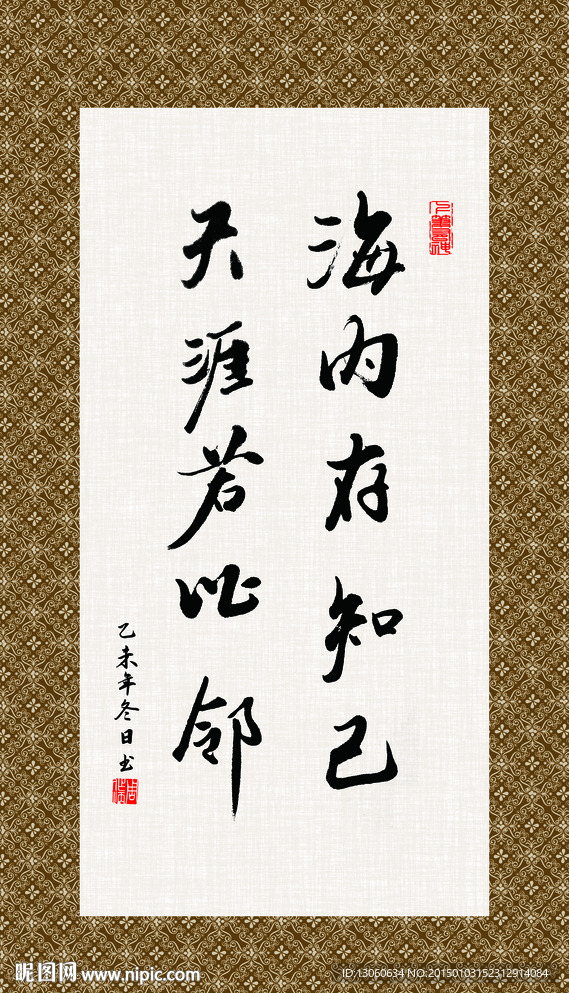 海内存知己
天涯若比邻
乙未年冬日书
昵图网 www.nipic.com
ID:13060634 NO:20150103152312914084